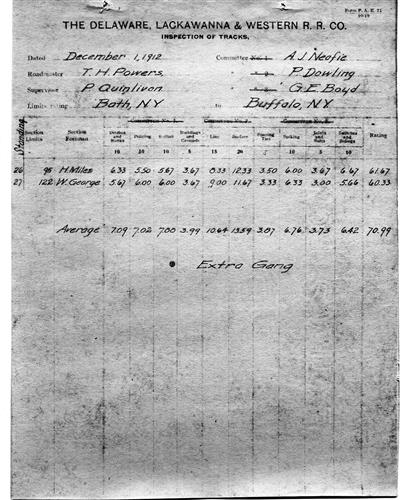 Form P. A. E. 71
THE DELAWARE, LACKAWANNA & WESTERN R. R. CO.
INSPECTION OF TRACKS,
Dated December 1, 1912 Committee No. 1 A. J. Neafie
Roadmaster T. H. Powers, " 2 P. Dowling
Supervisor P Quinlivan " 3 G. E. Boyd
Limits rating Bath, NY to Buffalo, N.Y.
Standing
Section Limits Section Foreman Policing Ballast Buildings and Grounds Line Surface Spacing Ties Joints and Bolts Switches and Sidings Rating
10 10 5 15 20 5 10 5 10
26 95 H. Miles 6.33 5.50 5.67 3.67 8.33 12.33 3.50 6.00 3.67 6.67 61.67
27 122 W. George 5.67 6.00 6.00 3.67 9.00 11.67 3.33 6.33 3.00 5.66 60.33
Average 7.09 7.02 7.00 3.99 10.64 13.59 3.87 6.76 3.73 6.42 70.99
Extra Gang